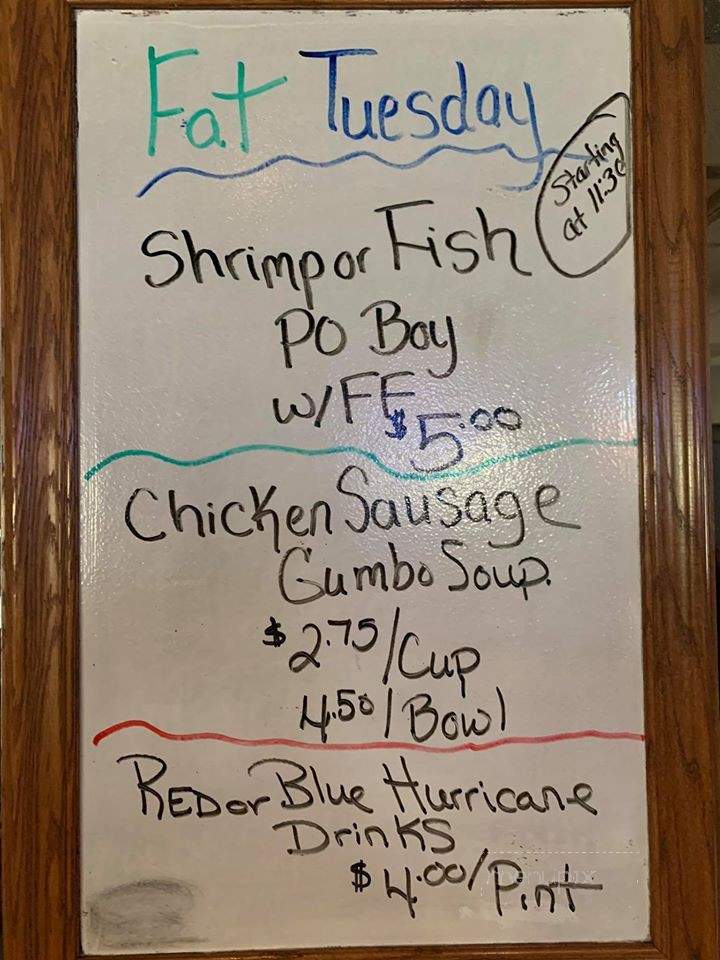 Fat Tuesday
Starting
at 11:30
Shrimp or Fish
PO Boy
w/FF
$5.00
Chicken Sausage
Gumbo Soup.
$2.75/Cup
4.50/Bowl
RED or Blue Hurricane
Drinks
$4.00/Pint